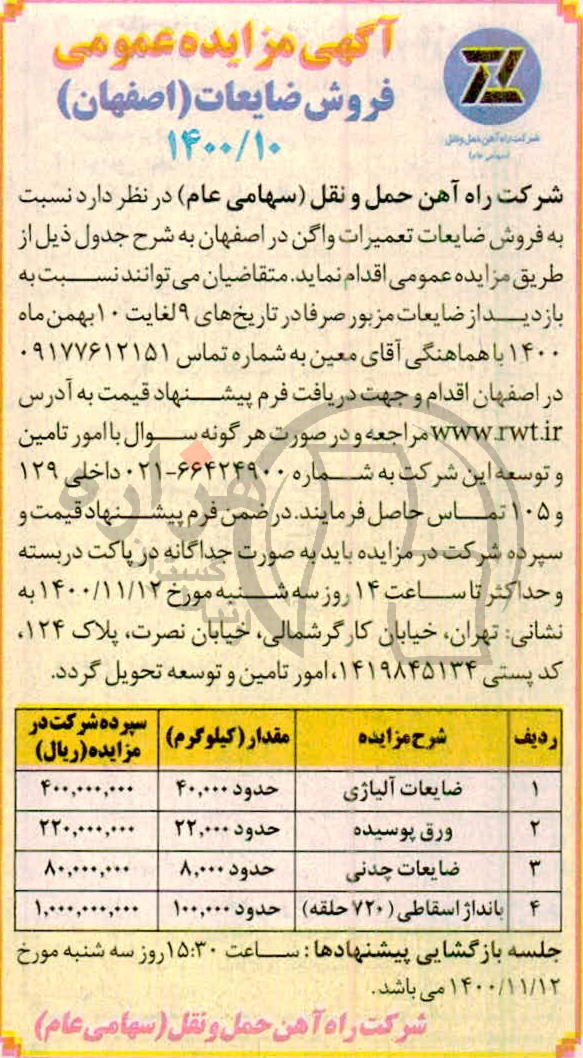 آگهی مزایده عمومی
فروش ضایعات (اصفهان)
۱۴۰۰/۱۰
شرکت راه آهن حمل و نقل
(سهامی عام)
شرکت راه آهن حمل و نقل (سهامی عام) در نظر دارد نسبت
به فروش ضایعات تعمیرات واگن در اصفهان به شرح جدول ذیل از
طریق مزایده عمومی اقدام نماید. متقاضیان می توانند نسبت به
بازدید از ضایعات مزبور صرفا در تاریخ‌های ۹ لغایت ۱۰ بهمن ماه
۱۴۰۰ با هماهنگی آقای معین به شماره تماس ۰۹۱۷۷۶۱۲۱۵۱
در اصفهان اقدام و جهت دریافت فرم پیشنهاد قیمت به آدرس
www.rwt.ir مراجعه و در صورت هر گونه سوال با امور تامین
و توسعه این شرکت به شماره ۶۶۴۲۴۹۰۰-۰۲۱ داخلی ۱۲۹
و ۱۰۵ تماس حاصل فرمایند. در ضمن فرم پیشنهاد قیمت و
سپرده شرکت در مزایده باید به صورت جداگانه در پاکت دربسته
و حداکثر تا ساعت ۱۴ روز سه شنبه مورخ ۱۴۰۰/۱۱/۱۲ به
نشانی: تهران، خیابان کارگرشمالی، خیابان نصرت، پلاک ۱۲۴،
کد پستی ۱۴۱۹۸۴۵۱۳۴، امور تامین و توسعه تحویل گردد.
ردیف شرح مزایده مقدار (کیلوگرم) سپرده شرکت در مزایده (ریال)
۱ ضایعات آلیاژی حدود ۴۰,۰۰۰ ۴۰۰,۰۰۰,۰۰۰
۲ ورق پوسیده حدود ۲۲,۰۰۰ ۲۲۰,۰۰۰,۰۰۰
۳ ضایعات چدنی حدود ۸,۰۰۰ ۸۰,۰۰۰,۰۰۰
۴ بانداژ اسقاطی (۷۲۰ حلقه) حدود ۱۰۰,۰۰۰ ۱,۰۰۰,۰۰۰,۰۰۰
جلسه بازگشایی پیشنهادها: ساعت ۱۵:۳۰ روز سه شنبه مورخ
۱۴۰۰/۱۱/۱۲ می باشد.
شرکت راه آهن حمل و نقل (سهامی عام)